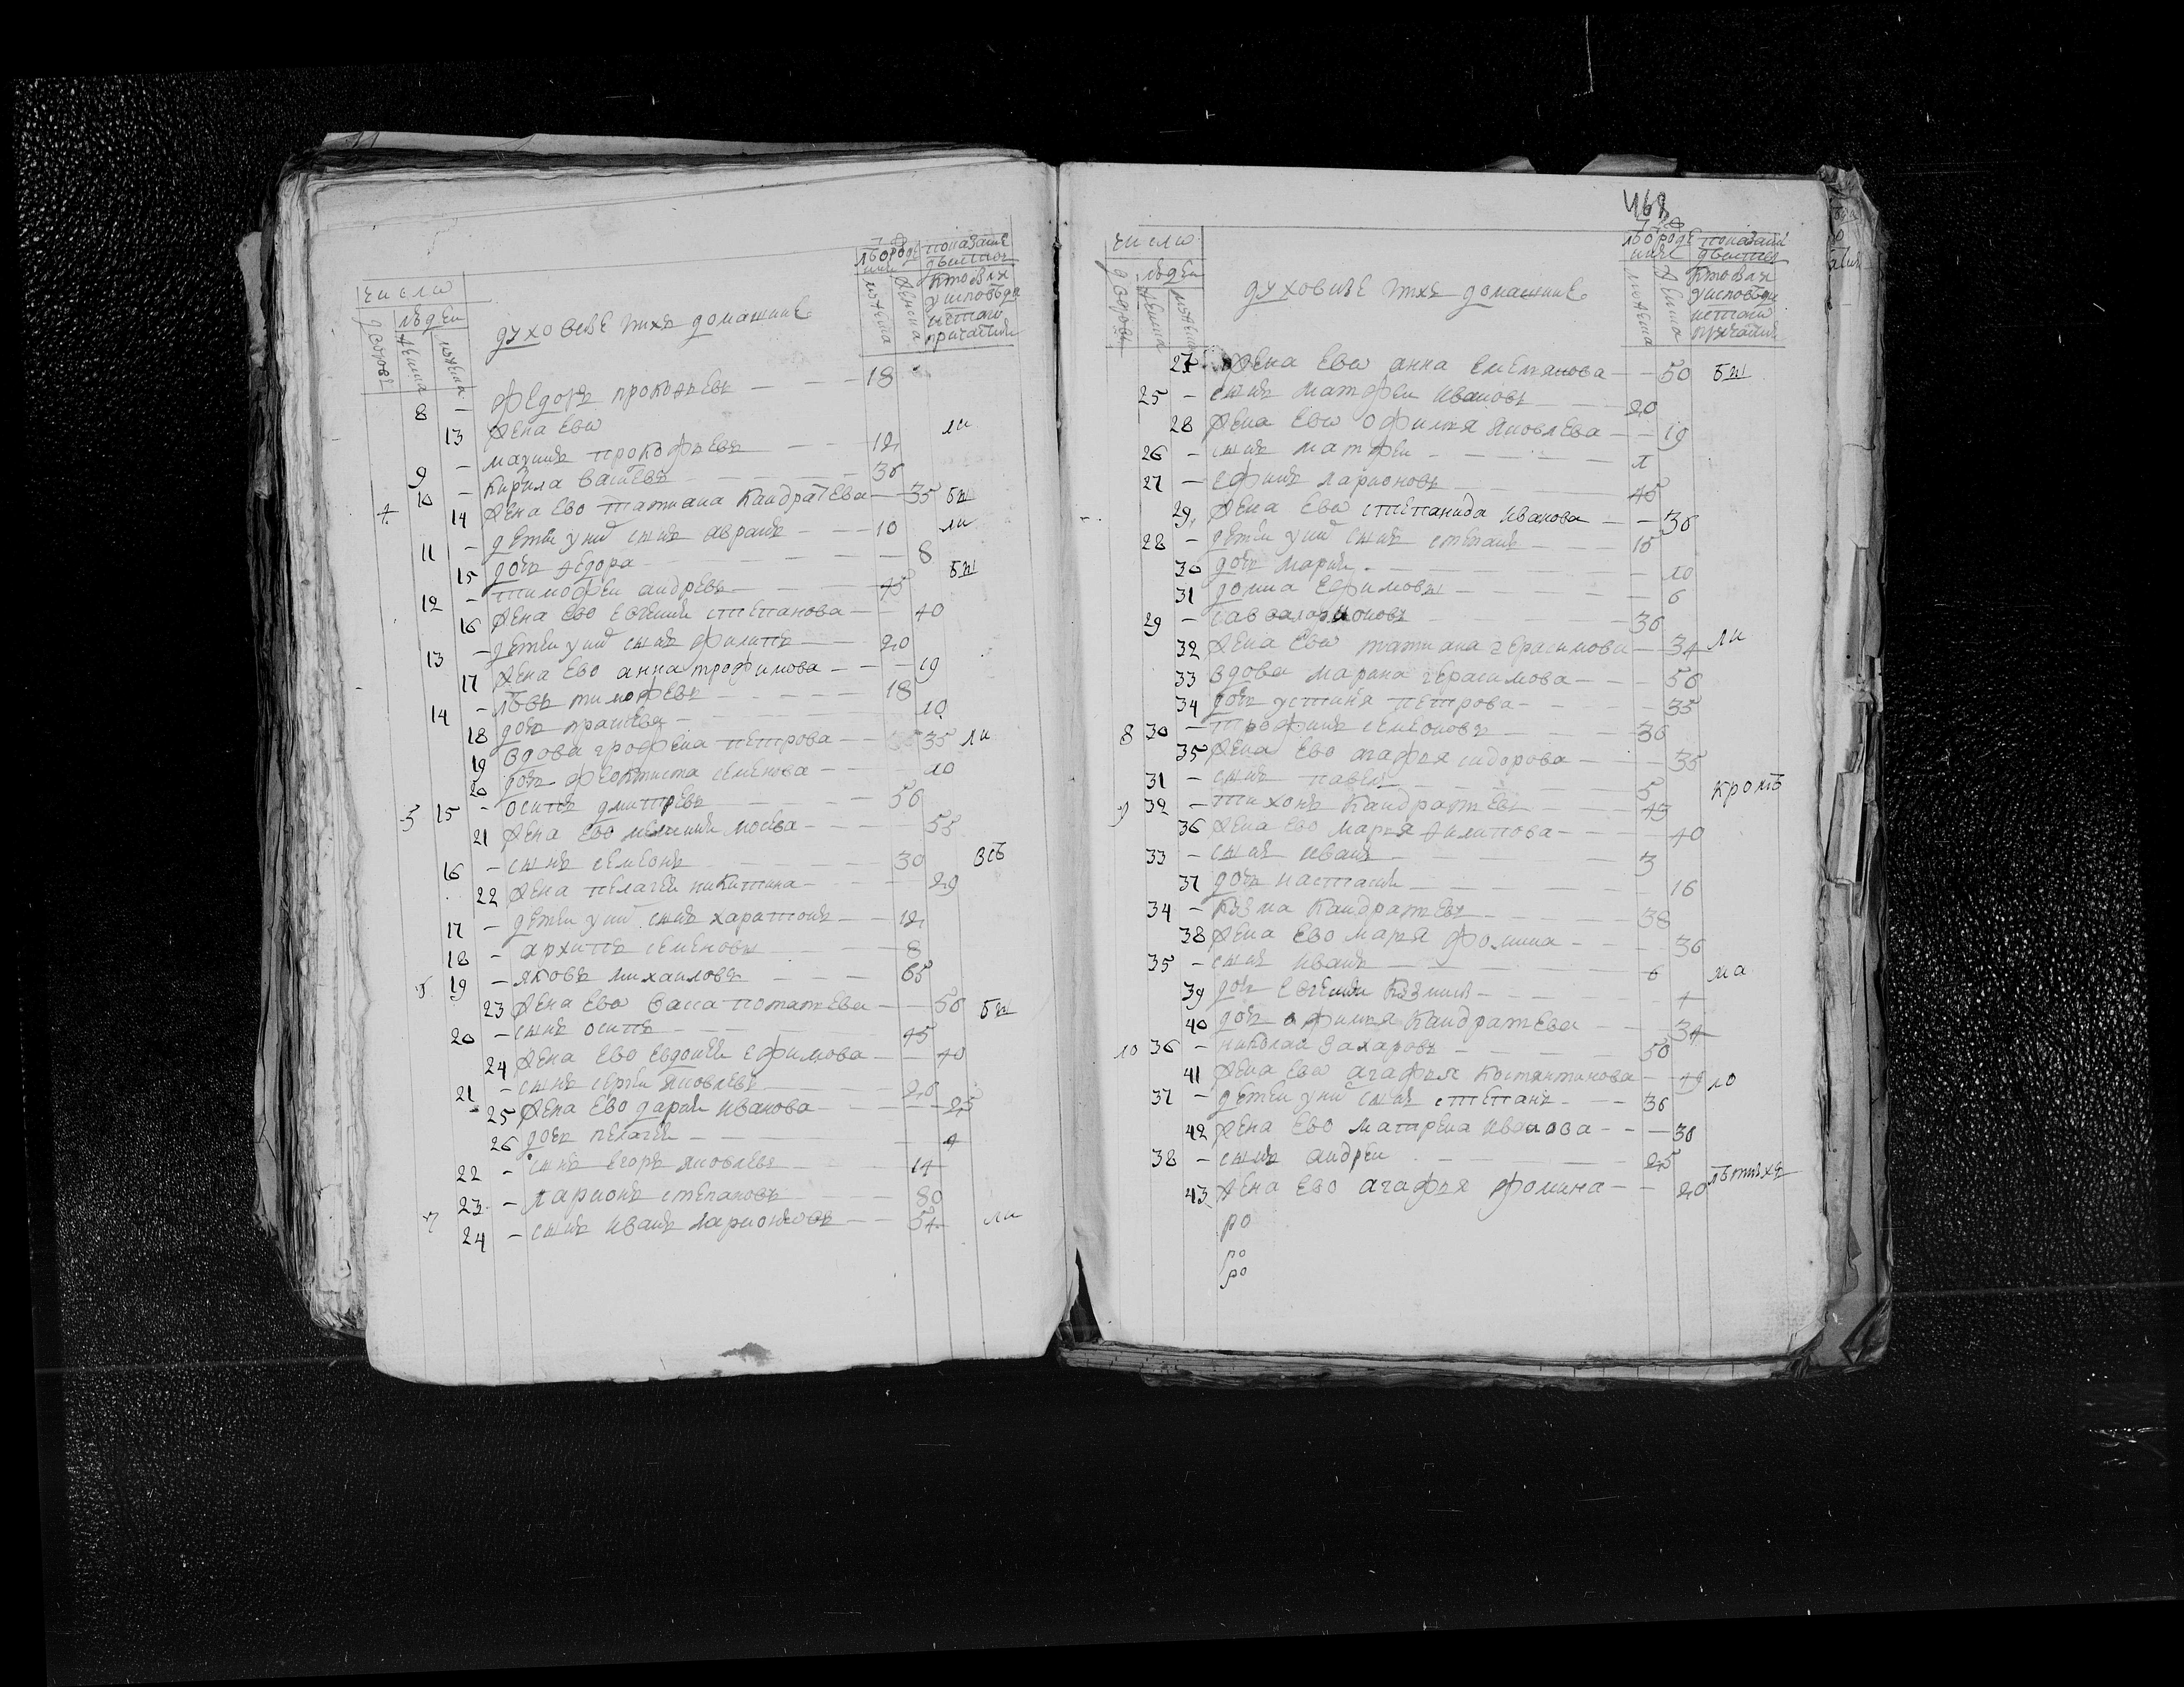 число
людеи
дворовъ
духовные ихъ домашние
лѣ ѿ рожде
ния
показание
действа
кто был
у исповѣди
и с таго
причастия
8 - Федоръ прокофьевъ - - - 18
13 жена евѡ
ли
9 - ма прокофьевъ - - 12
10 - кирила васи евъ - - - 36
4 14 жена ево татиана кандратева - - 35 бы
11 - детеи у них сынъ аврамъ - - - 10 ли
15 дочь федора - - - 8
12 - тимофеи андревъ - - - 45 бы
16 жена ево евгения степанова - - 40
13 - детеи у них сынъ филипъ - - 20
17 жена ево анна трофимова - - - 19
14 - львъ тимофевъ - - - 18
18 дочь - - - 10
19 вдова грофена петрова - - 35 ли
20 дочь феоктиста семенова - - - 10
5 15 - осипъ дмитревъ - - - 56
21 жена ево мосева - - - 55
16 - сынъ семенъ - - - 30 всѣ
22 жена пелагея никитина - - - 29
17 - детеи у них сынъ харатонъ - - 12
18 - архипъ семеновъ - - - 8
19 - яковъ михаиловъ - - - 65
23 жена евѡ васса потатева - - 56 бы
20 - сынъ осипъ - - - 45
24 жена ево евдокея ефимова - - 40
21 - сынъ сергеи яковлевъ - - - 26
25 жена ево дария иванова - - - 25
26 дочь пелагея - - - 4
22 - сынъ егоръ яковлевъ - - - 14
23 - ларионъ степановъ - - - 80
7 24 - сынъ иванъ ларионовъ - - 54 ли
468
число
людеи
дворовъ
духовные ихъ домашние
лѣ ѿ рожде
ния
показание
действа
кто был
у исповѣди
и с таго
причастия
27 жена евѡ анна емелянова - - 50 бы
25 - сынъ матфеи ивановъ - - - 20
28 жена евѡ офимья яковлева - - 19
26 - сынъ матфеи - - - л
27 - ефимъ ларионовъ - - - 45
29 жена евѡ степанида иванова - - 36
28 - детеи у них сынъ степанъ - - - 15
30 дочь мария - - - 10
31 домна ефимовы - - - 6
29 - савва ларионовъ - - - 36
32 жена евѡ татиана герасимова - - 34 ли
33 вдова марина герасимова - - - 56
34 дочь устиня петрова - - - 35
8 30 - трофимъ семеоновъ - - - 36
35 жена ево агафья сидорова - - - 35
31 - сынъ павелъ - - - 5 кромѣ
9 32 - тихонъ кандратевъ - - - 43
36 жена ево марья филипова - - - 40
33 - сынъ иванъ - - - 3
37 дочь настасия - - - 16
34 - кузма кандратевъ - - - 38
38 жена ево марья фомина - - - 36
35 - сынъ иванъ - - - 6 ма
39 дочь евгения кузмина - - - 4
40 дочь офимья кандратева - - 34
10 36 - николаи захаровъ - - - 50
41 жена евѡ агафья костянтинова - - 49 ло
37 - детеи у них сынъ степанъ - - - 36
42 жена ево матрена иванова - - - 30
38 - сынъ андреи - - - 25
43 жена ево агафья фомина - - 20 лѣтныхъ
ро
ро
ро